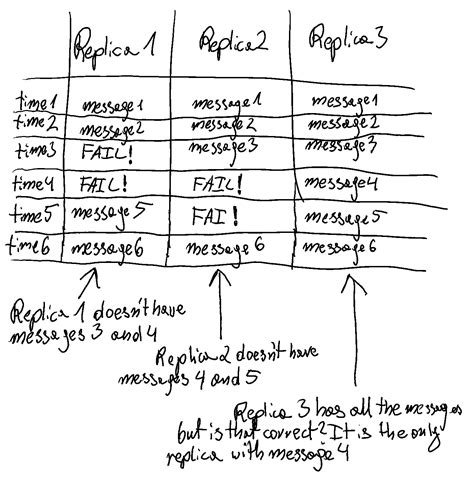 Replica 1 Replica2 Replica3
time1 message1 message1 message1
time2 message2 message2 message2
time3 FAIL! message3 message3
time4 FAIL! FAIL! message4
time5 message5 FAI! message5
time6 message6 message6 message6
Replica 1 doesn't have
messages 3 and 4
Replica2 doesn't have
messages 4 and 5
Replica 3 has all the messages
but is that correct? It is the only
replica with message 4